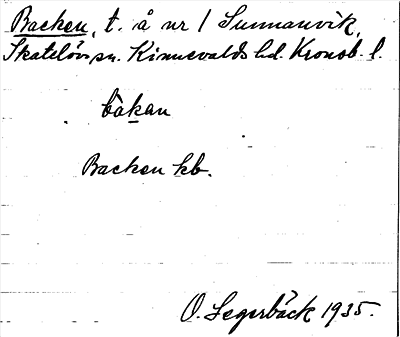 Backen, t. å nr 1 Sunnanvik,
Skatelövs sn. Kinnevalds hd. Kronob. l.
bàkan
Backen kb.
O. Segerbäck 1935.